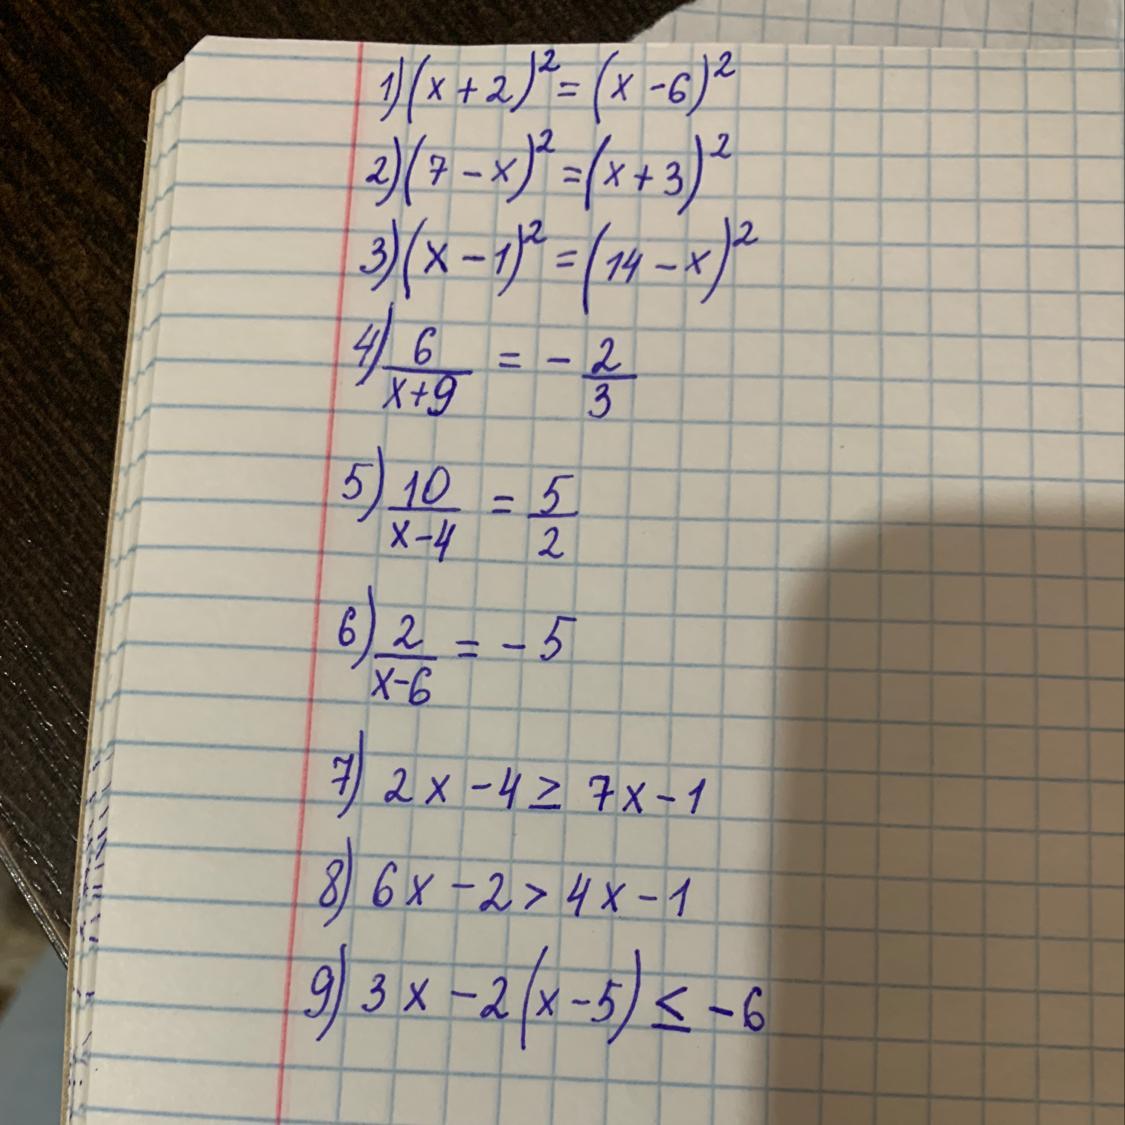 1) (x+2)² = (x-6)²
2) (7-x)² = (x+3)²
3) (x-1)² = (14-x)²
4) 6/(x+9) = -2/3
5) 10/(x-4) = 5/2
6) 2/(x-6) = -5
7) 2x-4 ≥ 7x-1
8) 6x-2 > 4x-1
9) 3x-2(x-5) ≤ -6